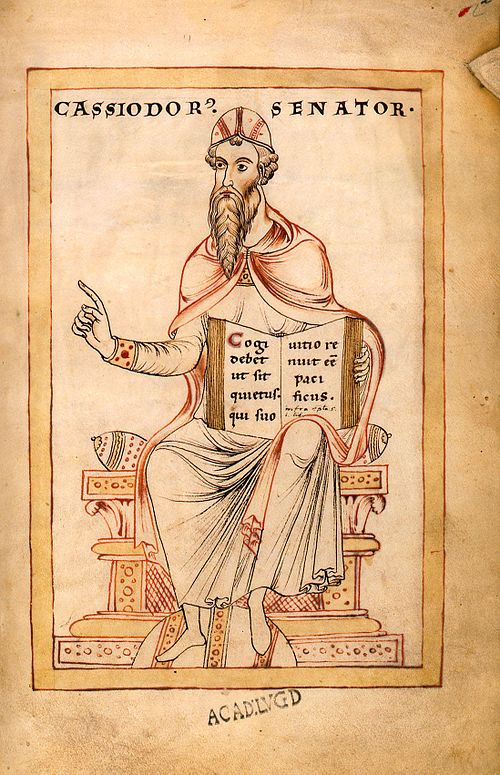 CASSIODORꝰ. SENATOR·
Cogi
debet
ut sit
quietus·
qui suo
uitio re
nuit eē
paci
ficus·
ACAD. LVGD